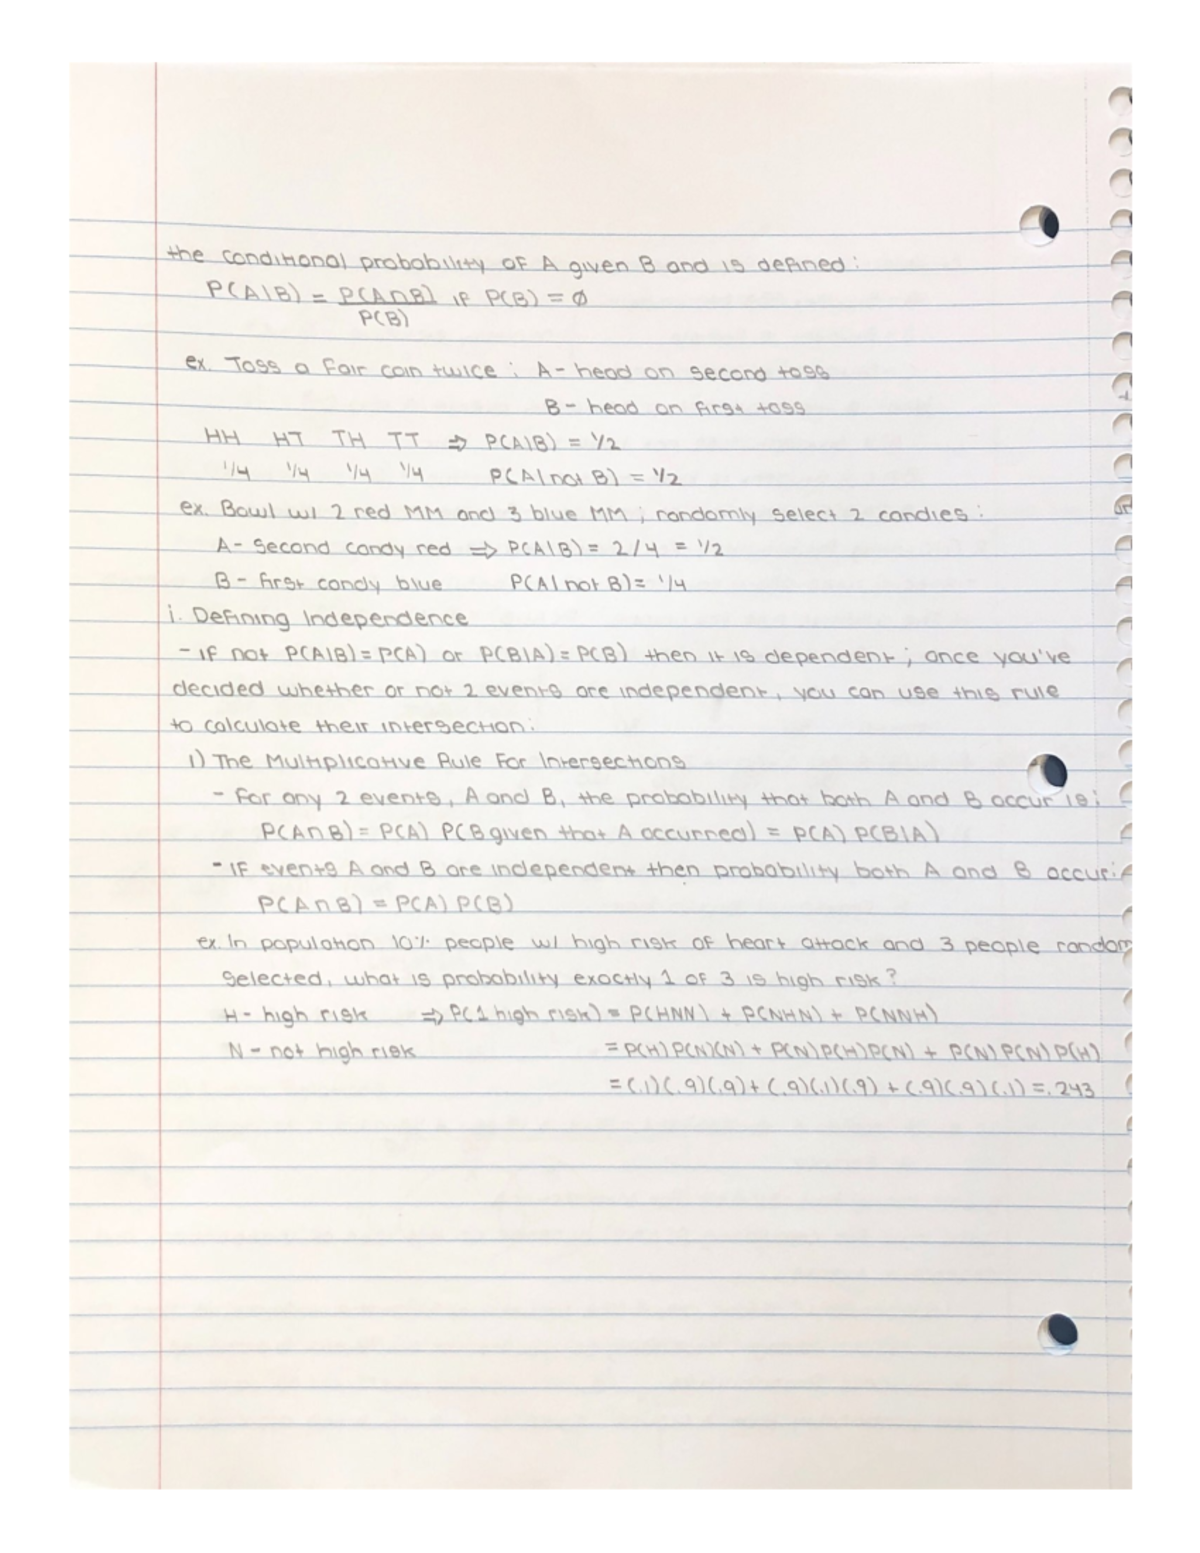 the conditional probability of A given B and is defined:
P(A|B) = P(A∩B) if P(B) = ∅
P(B)
ex. Toss a fair coin twice: A - head on second toss
B - head on first toss
HH HT TH TT ⇒ P(A|B) = 1/2
1/4 1/4 1/4 1/4 P(A|not B) = 1/2
ex. Bowl w/ 2 red MM and 3 blue MM; randomly select 2 candies:
A - second candy red ⇒ P(A|B) = 2/4 = 1/2
B - first candy blue P(A|not B) = 1/4
i. Defining Independence
- if not P(A|B) = P(A) or P(B|A) = P(B) then it is dependent; once you've
decided whether or not 2 events are independent, you can use this rule
to calculate their intersection:
1) The Multiplicative Rule For Intersections
- For any 2 events, A and B, the probability that both A and B occur is:
P(A∩B) = P(A) P(B given that A occurred) = P(A) P(B|A)
- If events A and B are independent then probability both A and B occur:
P(A∩B) = P(A) P(B)
ex. In population 10% people w/ high risk of heart attack and 3 people random
selected, what is probability exactly 1 of 3 is high risk?
H - high risk ⇒ P(1 high risk) = P(HNN) + P(NHN) + P(NNH)
N - not high risk = P(H)P(N)(N) + P(N)P(H)P(N) + P(N)P(N)P(H)
= (.1)(.9)(.9) + (.9)(.1)(.9) + (.9)(.9)(.1) = .243